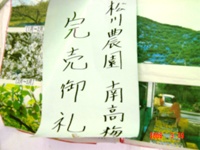 松川農園 南高梅
完売御礼